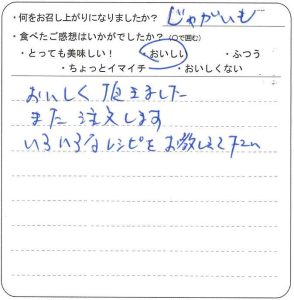 ・何をお召し上がりになりましたか？ じゃがいも
・食べたご感想はいかがでしたか？（○で囲む）
・とっても美味しい！ ・おいしい ・ふつう
・ちょっとイマイチ ・おいしくない
おいしく頂きました
また注文します
いろいろなレシピをお教えして下さい